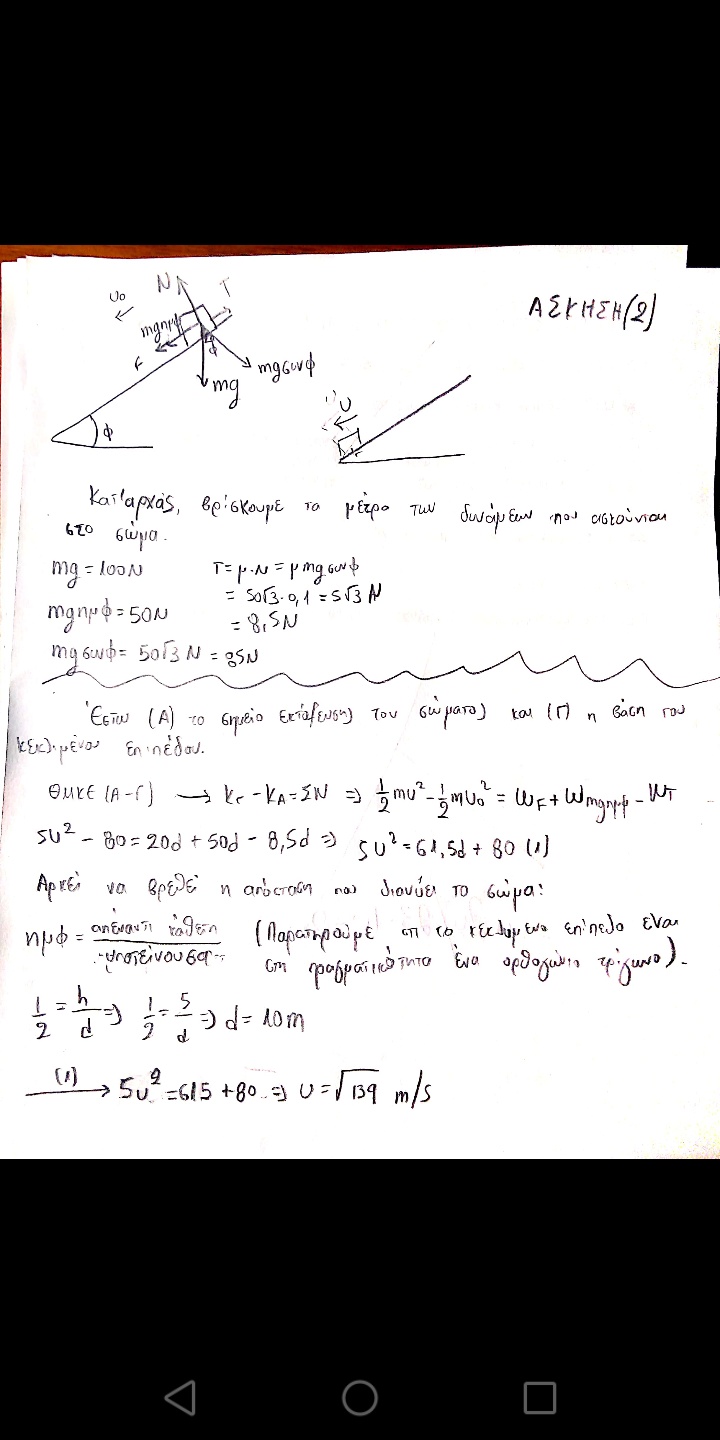 ΑΣΚΗΣΗ (2)
υ₀
N
T
mgημφ
F
φ
mgσυνφ
mg
φ
υ
Κατ'αρχάς, βρίσκουμε τα μέτρα των δυνάμεων που ασκούνται
στο σώμα.
mg = 100N
T = μ·N = μmgσυνφ
= 50√3·0,1 = 5√3 N
mgημφ = 50N
= 8,5N
mgσυνφ = 50√3 N = 85N
Έστω (A) το σημείο εκτόξευσης του σώματος και (Γ) η βάση του
κεκλιμένου επιπέδου.
ΘΜΚΕ (A-Γ) → KΓ - KA = ΣW => 1/2 mυ² - 1/2 mυ₀² = WF + Wmgημφ - WT
5υ² - 80 = 20d + 50d - 8,5d => 5υ² = 61,5d + 80 (1)
Αρκεί να βρεθεί η απόσταση που διανύει το σώμα:
ημφ = απέναντι κάθετη / υποτείνουσα (Παρατηρούμε οτι το κεκλιμενο επίπεδο είναι
στη πραγματικότητα ένα ορθογώνιο τρίγωνο).
1/2 = h/d => 1/2 = 5/d => d = 10m
(1) → 5υ² = 615 + 80 => υ = √139 m/s